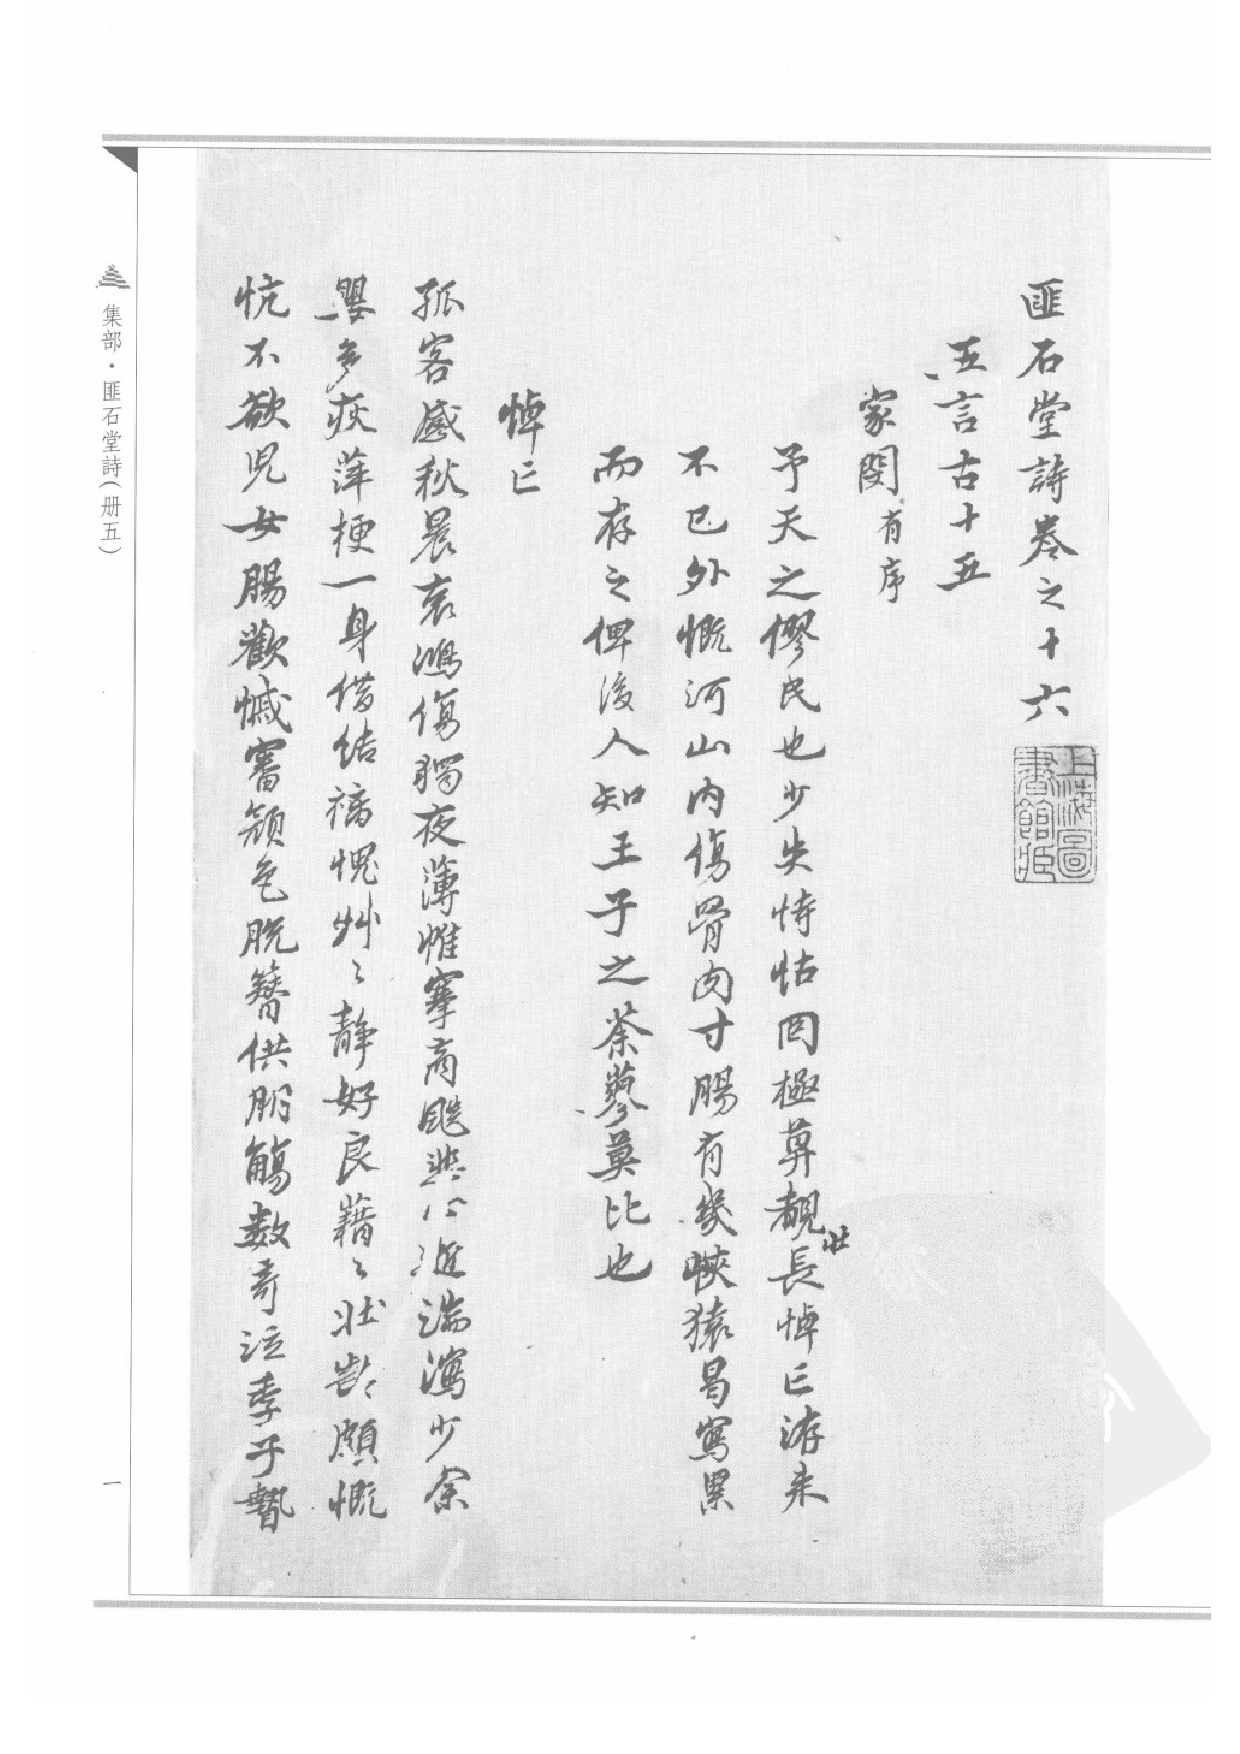 匪石堂詩卷之十六
上海圖書館藏
五言古十五
家閔有序
予天之僇民也少失恃怙罔極莫覩長壯悼亡洊來
不已外慨河山内傷骨肉寸腸有幾峽猿曷寫累
而存之俾後人知王子之荼蓼莫比也
悼亡
孤客感秋晨哀鴻傷獨夜薄帷搴商颷悲心逝湍瀉少余
嬰多疢萍梗一身借結褵愧艸〻静好良藉〻壯齡頗慨
忼不欲兒女腸歡慽審顔色脱簪供朋觴数奇泣季子贄
集部·匪石堂詩（册五）
一